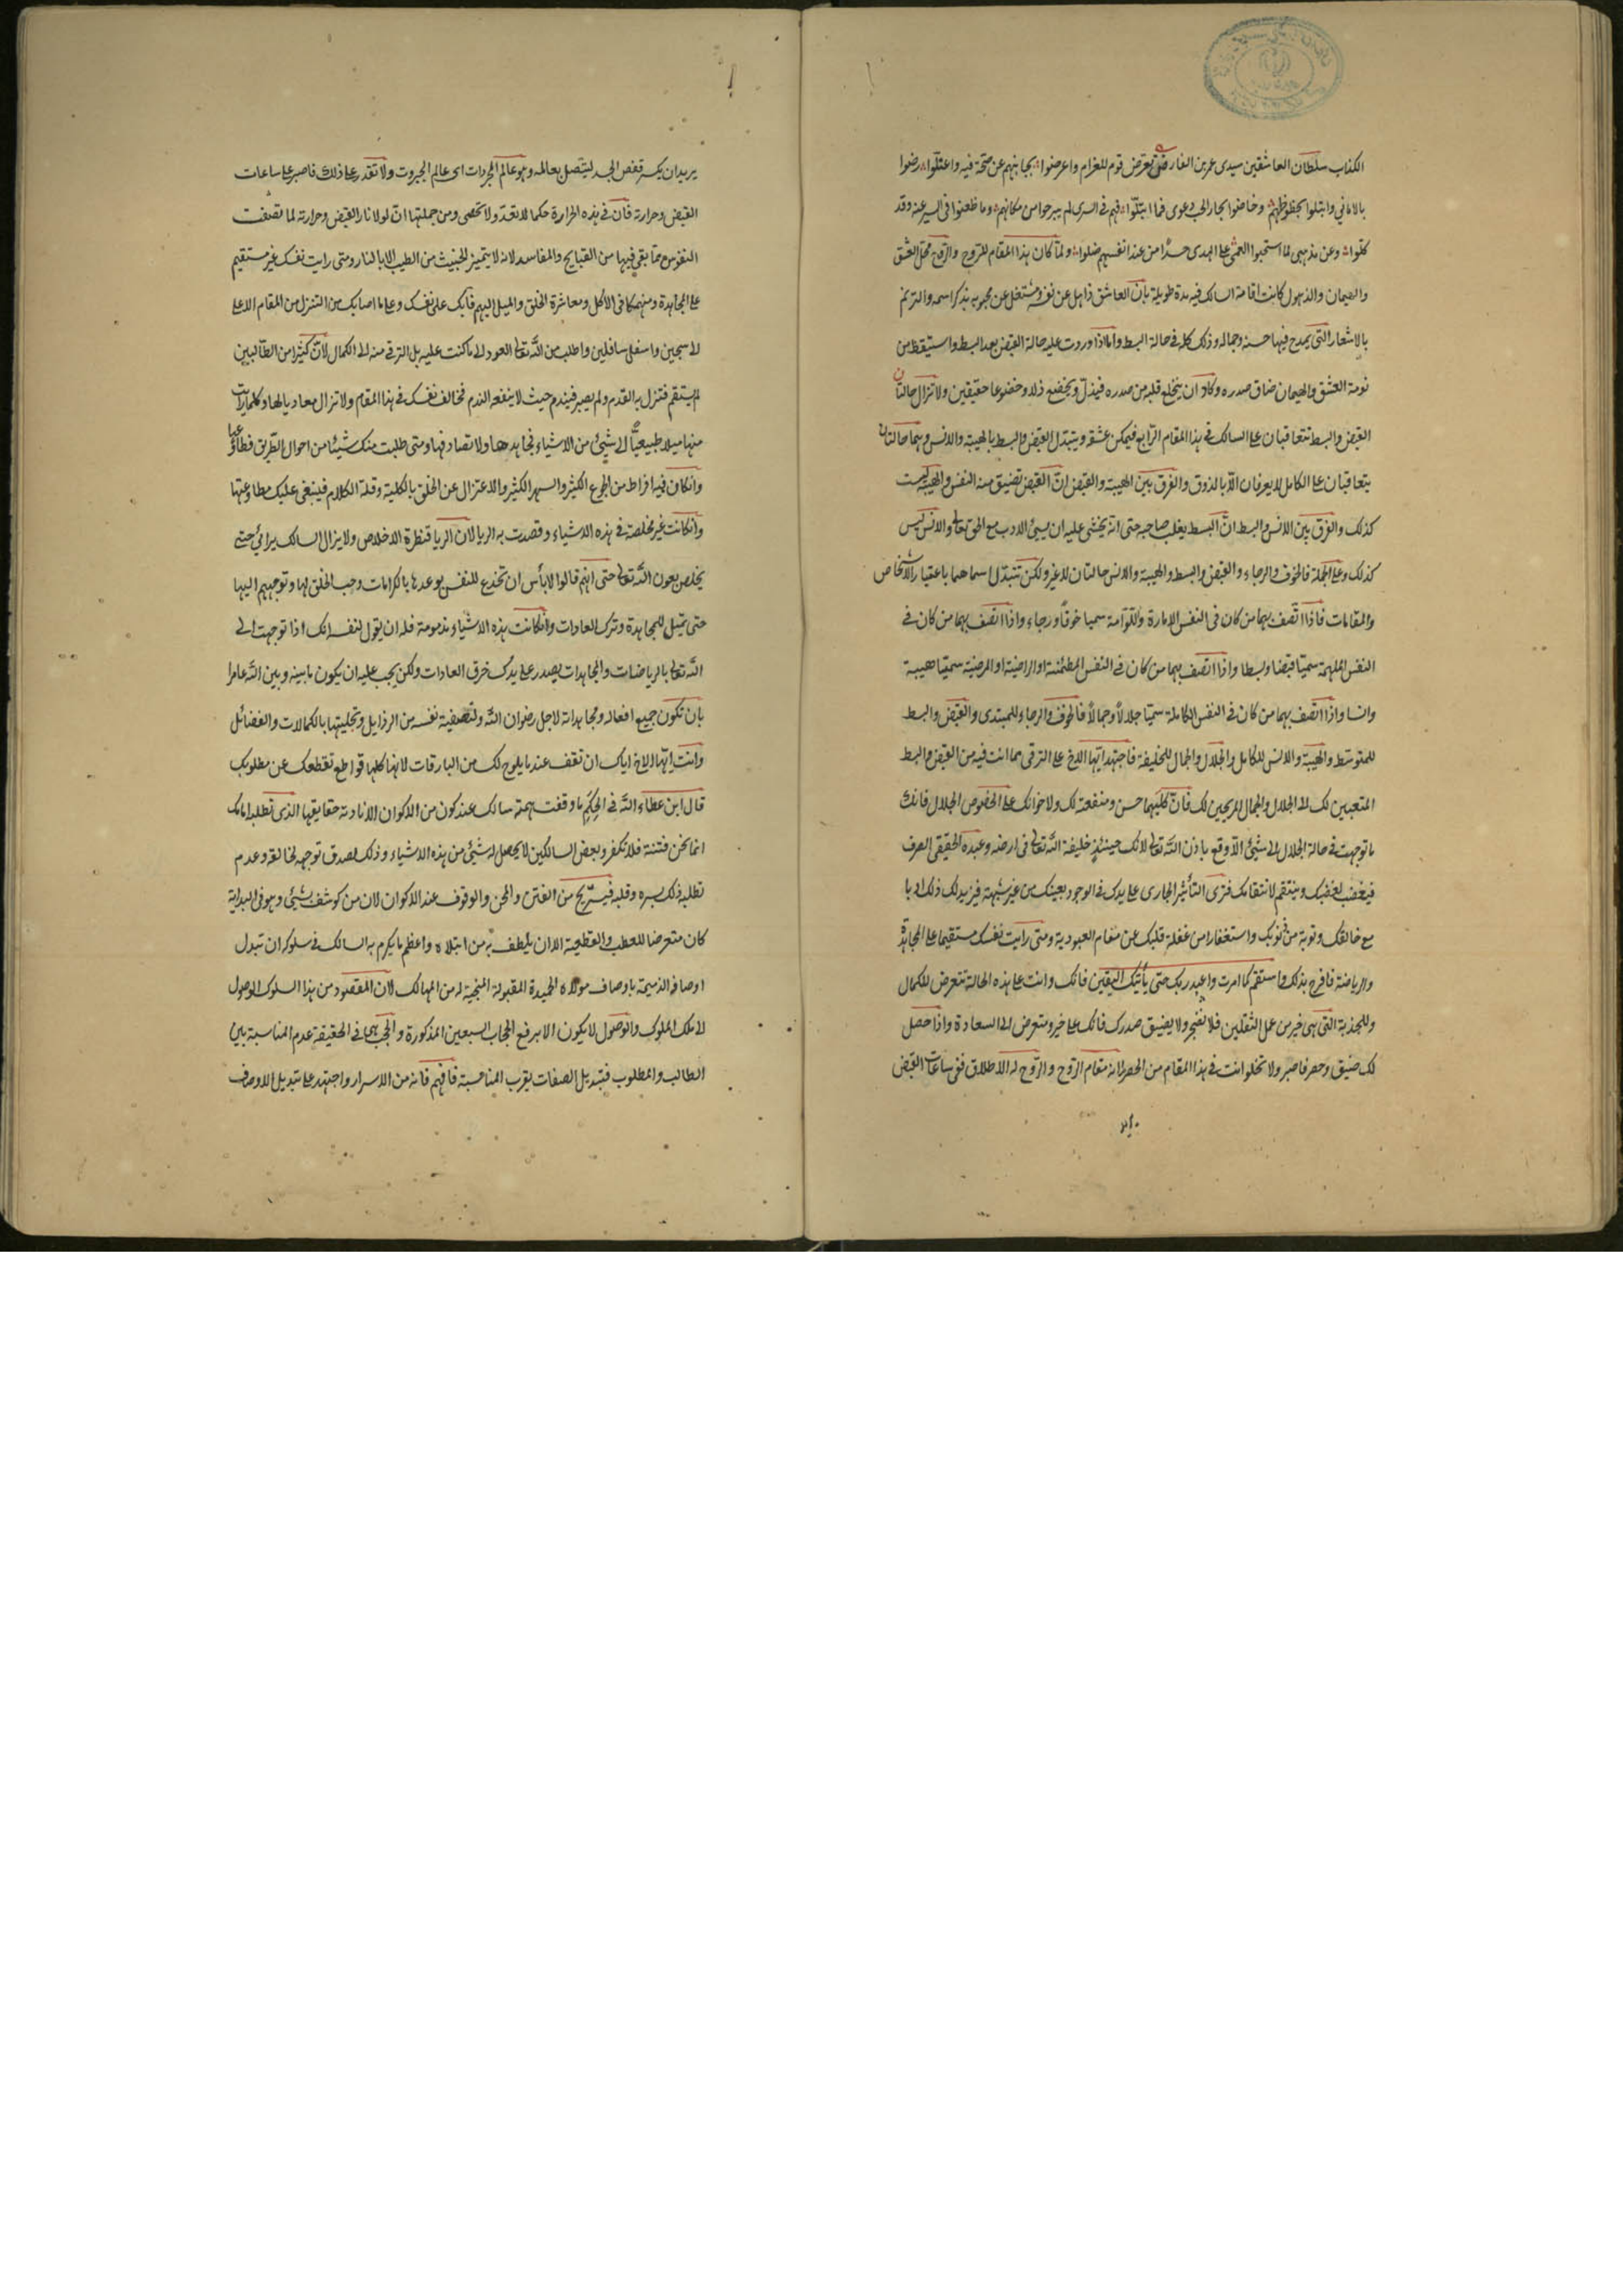 الكذاب سلطان العاشقين سيدى عمر بن الفارض تعرض قوم للغرام واعرضوا بجانبهم عن صحة فيه واعتلوا رضوا
بالامانى وابتلوا بحظوظهم وخاضوا بحار الحب دعوى فما ابتلوا فهم فى السرى لم يبرحوا من مكانهم وما ظعنوا فى السير عنه وقد
كلوا وعن مذهبى لما استحبوا العمى على الهدى حسدا من عند انفسهم ضلوا ولما كان هذا المقام للروح والروح محل العشق
والهيمان والذهول كانت اقامة السالك فيه مدة طويلة بان العاشق ذاهل عن نفسه ومشتغل عن محبوبه بذكر اسمه والترنم
بالاشعار التى يمدح فيها حسنه وجماله وذلك كله فى حالة البسط واما اذا وردت عليه حالة القبض بعد البسط واستيقظ من
نومة العشق والهيمان ضاق صدره وكاد ان ينخلع قلبه من صدره فيذل ويخضع ذلا وخضوعا حقيقين ولا تزال حالتان
القبض والبسط تتعاقبان على السالك فى هذا المقام الرابع فيمكن عشقه ويتبدل القبض والبسط بالهيبة والانس وهما حالتان
يتعاقبان على الكامل لا يعرفان الا بالذوق والفرق بين الهيبة والقبض ان القبض تضيق منه النفس والهيبة ليست
كذلك والفرق بين الانس والبسط ان البسط يغلب صاحبه حتى انه يخشى عليه ان يسئ الادب مع الحق تعالى والانس ليس
كذلك وعلى الجملة فالخوف والرجاء والقبض والبسط والهيبة والانس حالتان لا غير ولكن تتبدل اسماهما باعتبار الاشخاص
والمقامات فاذا اتصف بهما من كان فى النفس الامارة واللوامة سميا خوفا ورجاء واذا اتصف بهما من كان فى
النفس الملهمة سميا قبضا وبسطا واذا اتصف بهما من كان فى النفس المطمئنة او الراضية او المرضية سميا هيبة
وانسا واذا اتصف بهما من كان فى النفس الكاملة سميا جلالا وجمالا فالخوف والرجاء للمبتدى والقبض والبسط
للمتوسط والهيبة والانس للكامل والجلال والجمال للخليفة فاجتهد ايها الاخ على الترقى مما انت فيه من القبض والبسط
المتعبين لك الى الجلال والجمال المريحين لك فان كليهما حسن ومنفعة لك ولاخوانك على الخصوص الجلال فانك
ما توجهت فى حالة الجلال الى شئ الا وقع باذن الله تعالى لانك حينئذ خليفة الله تعالى فى ارضه وعبده الحقيقى الصرف
فيغضب لغضبك وينتقم لانتقامك فترى التأثير الجارى على يدك فى الوجود بعينك من غير شبهة فيزيد لك ذلك ادبا
مع خالقك وتوبة من ذنوبك واستغفارا من غفلة قلبك عن مقام العبودية ومتى رايت نفسك مستقيما على المجاهدة
والرياضة فافرح بذلك واستقم كما امرت واعبد ربك حتى يأتيك اليقين فانك وانت على هذه الحالة تتعرض للكمال
وللجذبة التى هى خير من عمل الثقلين فلا تضجر ولا يضيق صدرك فانك على خير ومتعرض الى السعادة واذا حصل
لك ضيق وحصر فاصبر ولا تخلو انت فى هذا المقام من الحصر لانه مقام الروح والروح له الاطلاق ففى ساعات القبض
يريد ان يكسر قفص الجسد ليتصل بعالمه وهو عالم المجردات اى عالم الجبروت ولا تقدر على ذلك فاصبر على ساعات
القبض وحرارته فان فى هذه الحرارة حكما لا تعد ولا تحصى ومن جملتها انه لولا نار القبض وحرارته لما تصفت
النفوس مما بقى فيها من القبايح والمفاسد لانه لا يتميز الخبيث من الطيب الا بالنار ومتى رايت نفسك غير مستقيم
على المجاهدة ومنهمكا فى الاكل ومعاشرة الخلق والميل اليهم فابك على نفسك وعلى ما اصابك من التنزل من المقام الاعلى
الى سجين واسفل سافلين واطلب من الله تعالى العود الى ما كنت عليه بل الترقى منه الى الكمال لان كثيرا من الطالبين
لم يستقم فتنزل به القدم ولم يصبر فيندم حيث لا ينفعه الندم فخالف نفسك فى هذا المقام ولا تزال معاديا لها وكلما رايت
منها ميلا طبيعيا الى شئ من الاشياء فجاهدها ولا تصادقها ومتى طلبت منك شيئا من احوال الطريق فطاوعها
وانكان فيه افراط من الجوع الكثير والسهر الكثير والاعتزال عن الخلق بالكلية وقلة الكلام فينبغى عليك مطاوعتها
وانكانت غير مخلصة فى هذه الاشياء وقصدت به الريا لان الريا قنطرة الاخلاص ولا يزال السالك يرائى حتى
يخلص بعون الله تعالى حتى انهم قالوا لا بأس ان تخدع للنفس بوعدها بالكرامات وحب الخلق لها وتوجههم اليها
حتى تميل للمجاهدة وترك العادات وانكانت هذه الاشياء مذمومة فله ان يقول لنفسه انك اذا توجهت الى
الله تعالى بالرياضات والمجاهدات يصدر على يدك خرق العادات ولكن يجب عليه ان يكون ما بينه وبين الله عامرا
بان تكون جميع افعاله ومجاهداته لاجل رضوان الله ولتصفية نفسه من الرذايل وتحليتها بالكمالات والفضائل
وانت ايها الاخ اياك ان تقف عند ما يلوح لك من البارقات لانها كلها قواطع تقطعك عن مطلوبك
قال ابن عطاء الله فى الحكم ما وقفت همة سالك عند كون من الاكوان الا نادته حقايقها الذى تطلب امامك
انما نحن فتنة فلا تكفر وبعض السالكين لا يحصل له شئ من هذه الاشياء وذلك لصدق توجهه لخالقه وعدم
تطلبه ذلك بسره وقلبه فيستريح من الفتن والمحن والوقوف عند الاكوان لان من كوشف بشئ وهو فى البداية
كان متعرضا للعطب والقطيعة الا ان يلطف به من ابتلاه واعظم ما يكرم به السالك فى سلوكه ان تبدل
اوصافه الذميمة باوصاف مولاه الحميدة المقبولة المنجية له من المهالك لان المقصود من هذا السلوك الوصول
الى ملك الملوك والوصول لا يكون الا برفع الحجاب السبعين المذكورة والحجب انما هى فى الحقيقة عدم المناسبة بين
الطالب والمطلوب فتبديل الصفات يقرب المناسبة فافهم فانه من الاسرار واجتهد على تبديل الاوصاف